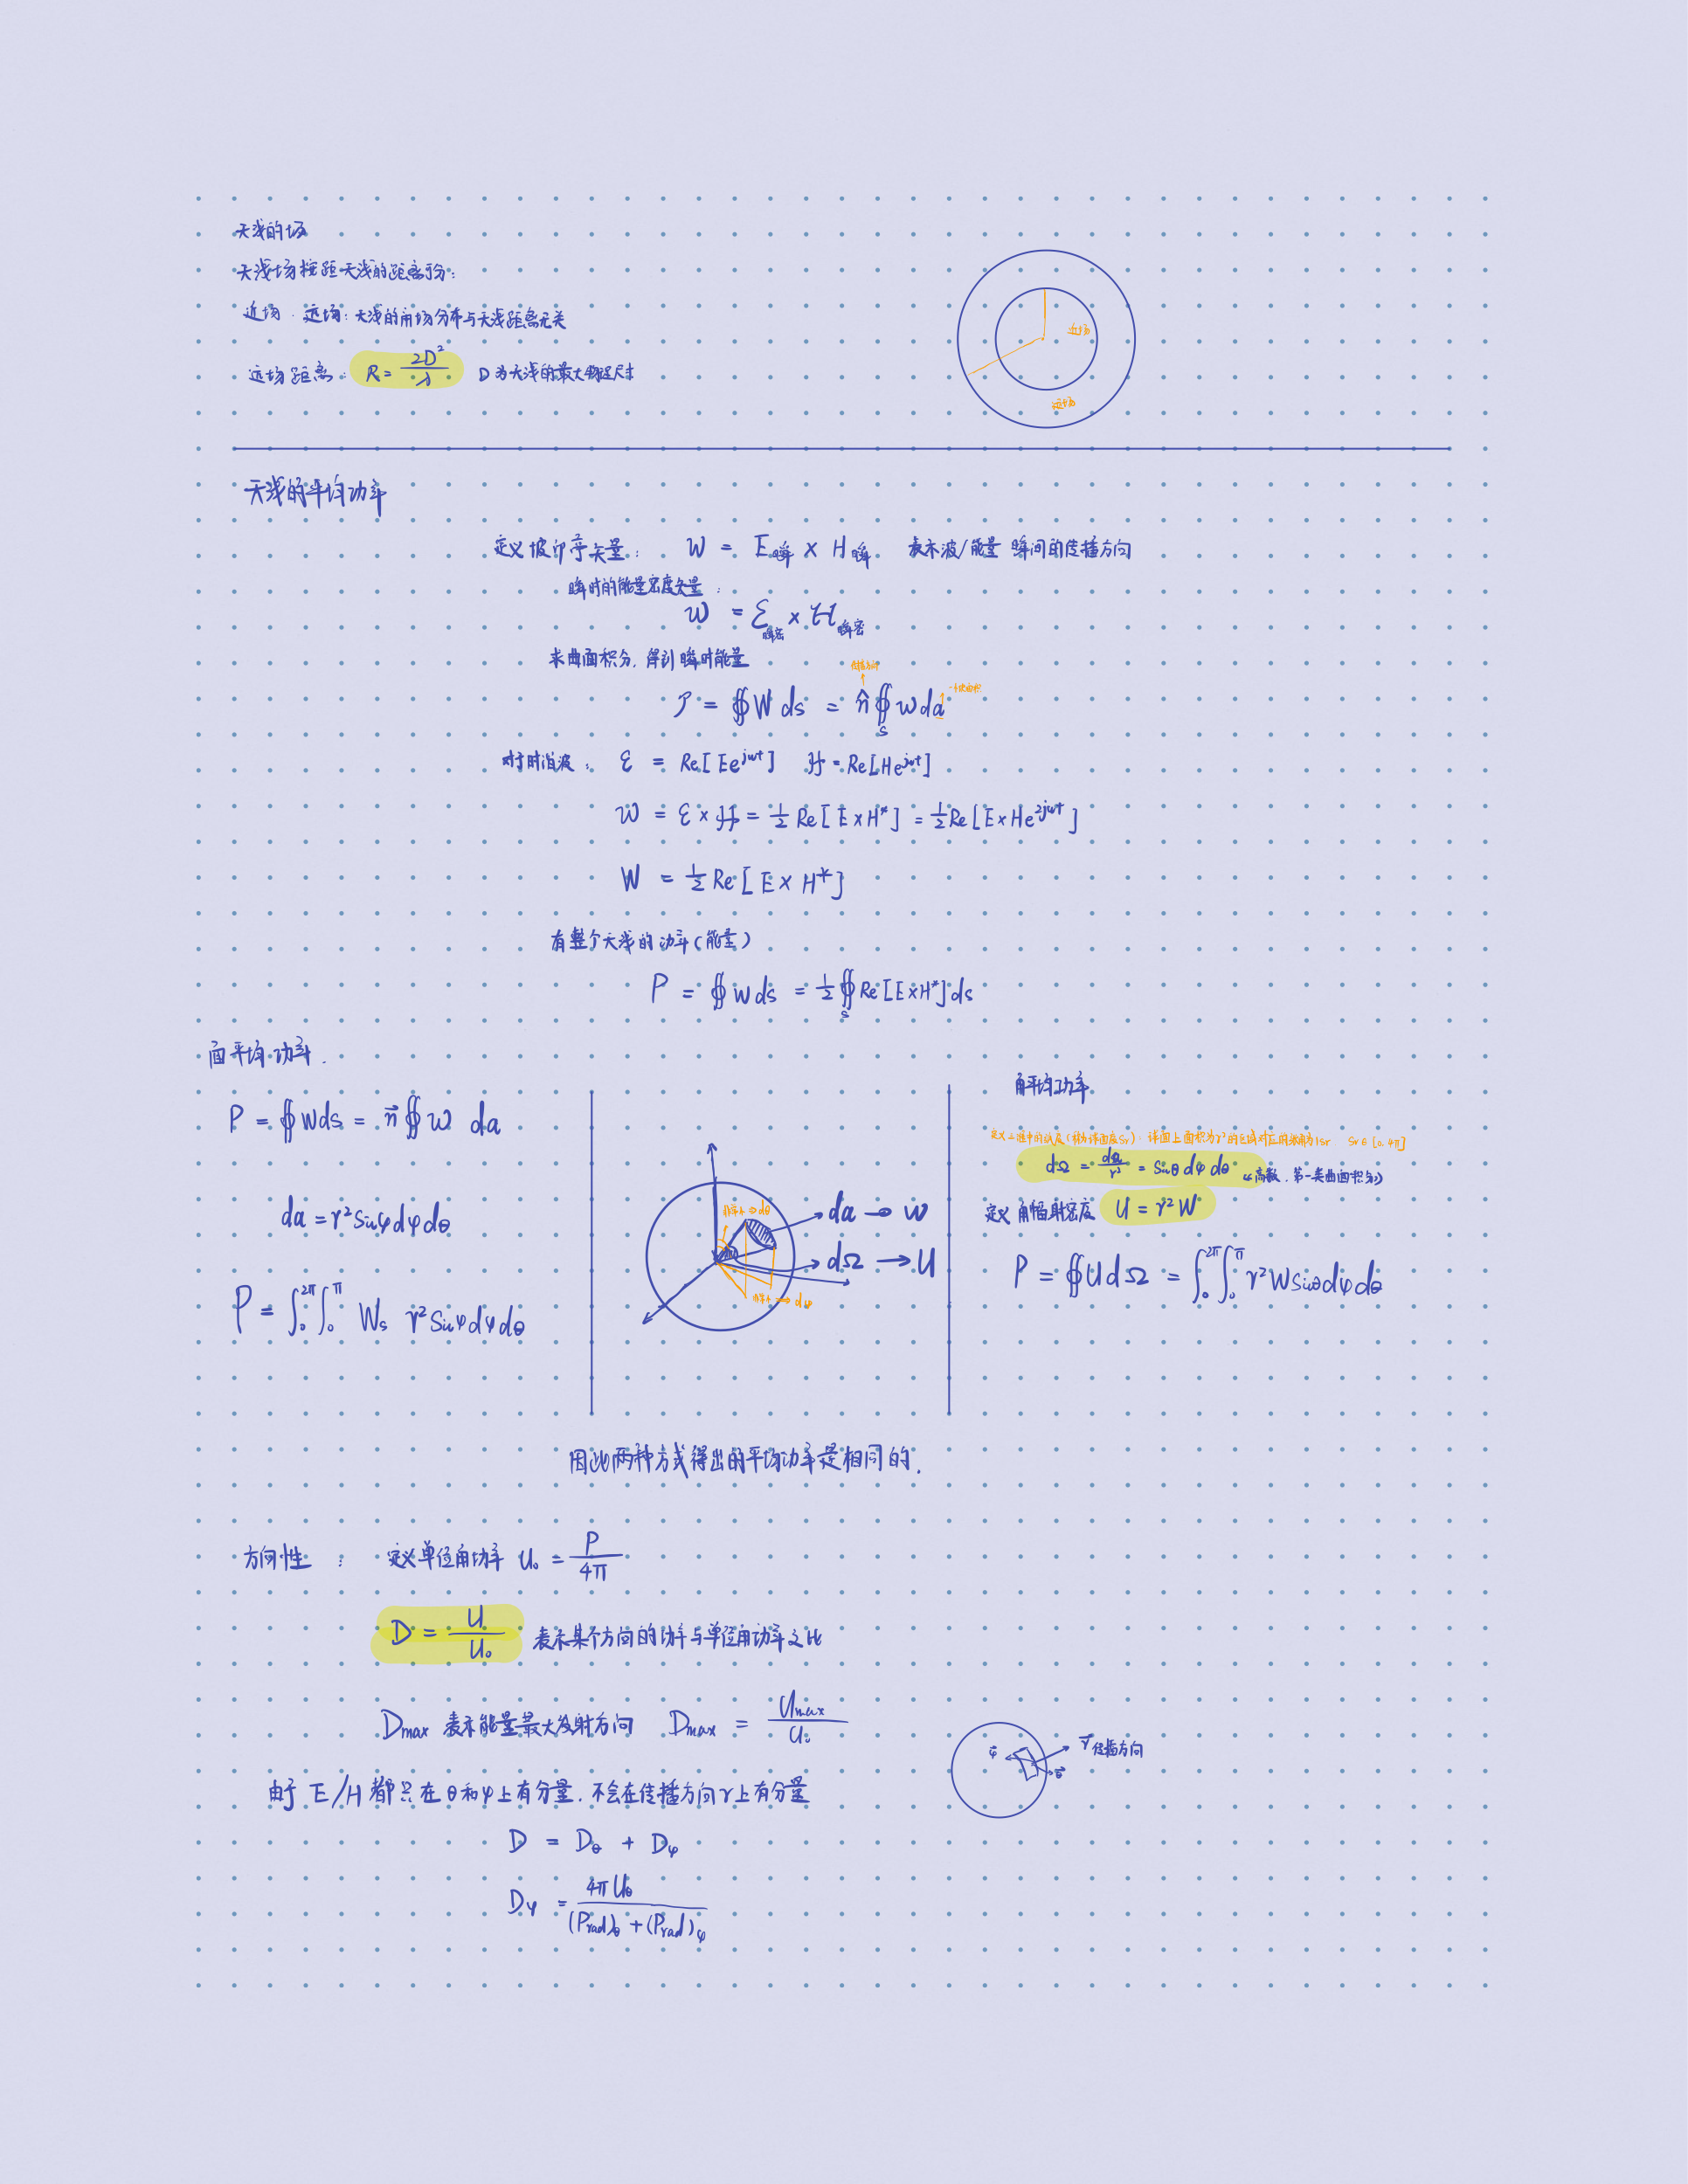 天线的场
天线场按距天线的距离可分:
近场 . 远场: 天线的角场分布与天线距离无关
远场距离: R = 2D²/λ D为天线的最大物理尺寸
近场
远场
天线的平均功率
定义坡印亭矢量: W = E瞬 × H瞬 表示波/能量 瞬间的传播方向
瞬时的能量密度矢量:
W = ℰ瞬密 × ℋ瞬密
求曲面积分, 得到瞬时能量
传播方向
P = ∯ W ds = n̂ ∯_s w da
对于时谐波: ℰ = Re[Ee^{jωt}] ℋ = Re[He^{jωt}]
W = ℰ × ℋ = ½ Re[E×H*] = ½ Re[E×He^{2jωt}]
W = ½ Re[E×H*]
有整个天线的功率(能量)
P = ∯ w ds = ½ ∯_s Re[E×H*] ds
面平均功率.
P = ∯ W ds = n⃗ ∯ w da
da = r² sinφ dφ dθ
P = ∫₀^{2π} ∫₀^{π} W_s r² sinφ dφ dθ
da → w
dΩ → U
角平均功率
dΩ = da/r² = sinθ dφ dθ (高数, 第一类曲面积分)
定义角辐射密度 U = r²W
P = ∯ U dΩ = ∫₀^{2π} ∫₀^{π} r² W sinθ dφ dθ
因此两种方式得出的平均功率是相同的.
方向性: 定义单位角功率 U₀ = P/4π
D = U/U₀ 表示某个方向的功率与单位角功率之比
Dmax 表示能量最大发射方向 Dmax = Umax/U₀
φ⃗ r⃗传播方向
θ⃗
由于 E/H 都只在θ和φ上有分量, 不会在传播方向r上有分量
D = D_θ + D_φ
D_φ = 4πU_θ / ((P_rad)_θ + (P_rad)_φ)